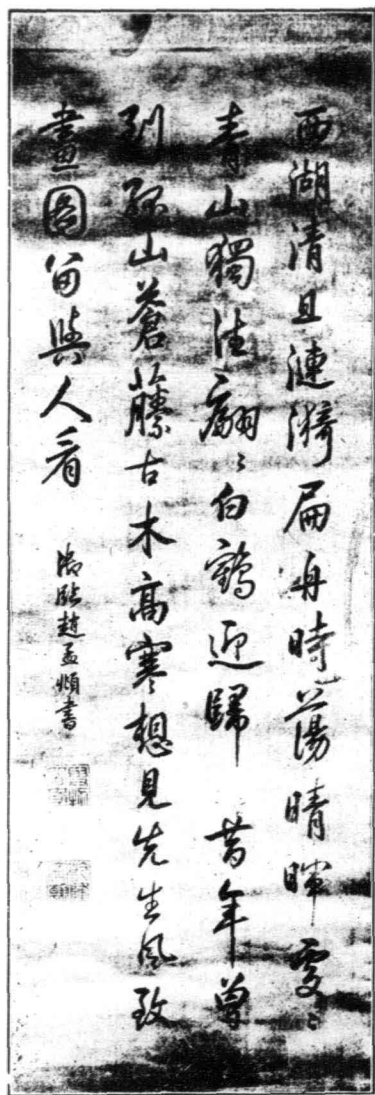 西湖清且漣漪扁舟時蕩晴暉處〻
青山獨往翩〻白鶴迎歸　昔年曾
到孤山蒼藤古木高寒想見先生風致
畫圖留與人看
趙孟頫書